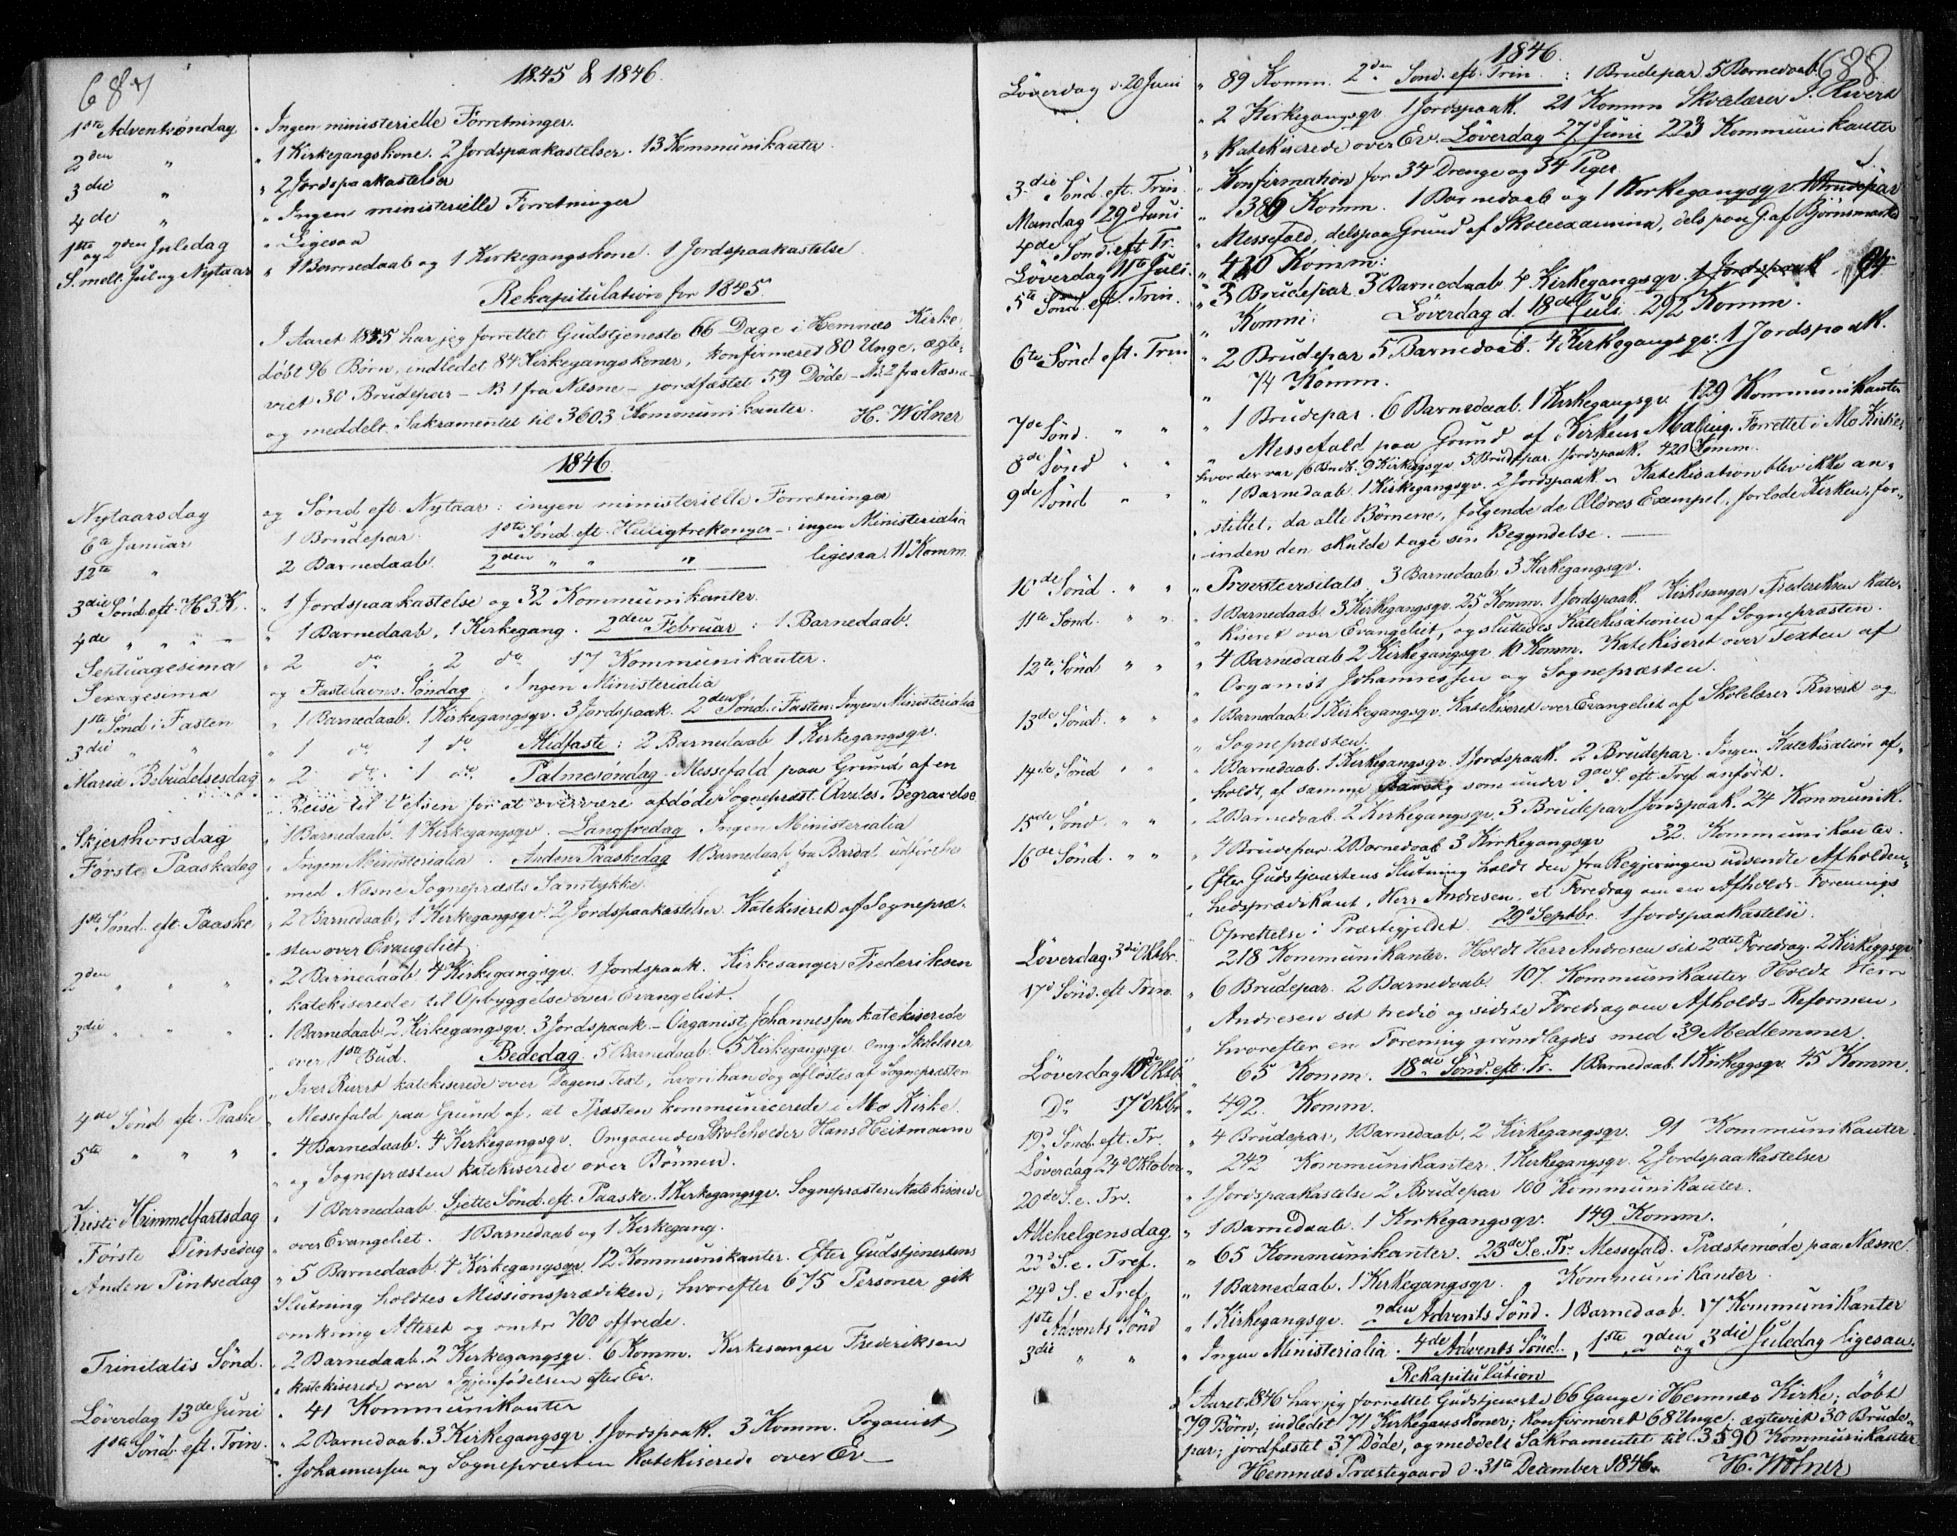 687
1845 & 1846.
1ste Adventsøndag „ Ingen ministerielle Forretninger.
2den „ „ 1 Kirkegangskone. 2 Jordspaakastelser. 13 Kommunikanter.
3die „ „ 2 Jordspaakastelser
4de „ „ Ingen ministerielle Forretninger
1ste og 2den Juledag „ Ligesaa
S. mell. Jul og Nytaar „ 1 Barnedaab og 1 Kirkegangskone. 1 Jordspaakastelse
Rekapitulation for 1845.
I Aaret 1845 har jeg forrettet Gudstjeneste 66 Dage i Hemnæs Kirke,
døbt 96 Børn, indledet 84 Kirkegangskoner, konfirmeret 80 Unge, ægte-
viet 30 Brudepar – NB 1 fra Næsne – jordfæstet 59 Døde – NB. 2 fra Næsne –
og meddelt Sakramentet til 3603 Kommunikanter. H. Wølner
1846.
Nytaarsdag og Sønd. eft. Nytaar: ingen ministerielle Forretninger
6te Januar 1 Brudepar. 1ste Sønd. eft. Helligtrekonger –: ingen Ministerialia
12te „ 2 Barnedaab. 2den „ „ „ ligesaa. 11 Komm.
3die Sønd. eft. H. 3 K. „ 1 Jordspaakastelse og 32 Kommunikanter.
4de „ „ „ – „ 1 Barnedaab, 1 Kirkegang. 2den Februar: 1 Barnedaab.
Septuagesima „ 2 do „ 2 do 17 Kommunikanter.
Sexagesima og Fastelavns Søndag: Ingen Ministerialia
1ste Sønd. i Fasten „ 1 Barnedaab. 1 Kirkegangsqv. 3 Jordspaak. 2den Sønd. i Fasten. Ingen Ministerialia
3die „ „ „ 1 do 1 do Midfaste: 2 Barnedaab 1 Kirkegangsqv.
Mariæ Bebudelsesdag „ 2 do 1 do. Palmesøndag. Messefald paa Grund af en
Reise til Vefsen for at overvære afdøde Sognepræst Begravelse.
Skjerthorsdag „ 1 Barnedaab. 1 Kirkegangsqv. Langfredag Ingen Ministerialia
Første Paaskedag „ Ingen Ministerialia. Anden Paaskedag 1 Barnedaab fra Bardal udførtes
med Næsne Sognepræsts Samtykke.
1ste Sønd. eft. Paaske „ 2 Barnedaab, 1 Kirkegangsqv. 2 Jordspaakastelser. Katekiseret af Sognepræ-
sten over Evangeliet.
2den „ „ „ „ 2 Barnedaab 4 Kirkegangsqv. 1 Jordspaak. Kirkesanger Frederiksen
katekiserede til Opbyggelse over Evangeliet.
3die „ „ „ „ 1 Barnedaab 2 Kirkegangsqv. 3 Jordspaak – Organist Johannessen katekiserede
over 1ste Bud. Bededag 5 Barnedaab. 5 Kirkegangsqv. Omg. Skolelærer
Iver katekiserede over Dagens Text, hvori han dog afløstes af Sognepræsten
4de Sønd. eft. Paaske „ Messefald paa Grund af, at Præsten kommunicerede i Mo Kirke.
5te „ „ „ „ 4 Barnedaab. 4 Kirkegangsqv. Omgaaende Skoleholder Hans Heitmann
„ og Sognepræsten katekiserede over Bønnen.
Kristi Himmelfartsdag „ 1 Barnedaab. Sjette Sønd. eft. Paaske. 1 Kirkegangsqv. Sognepræsten Katekiserede
over Evangeliet.
Første Pintsedag 1 Barnedaab og 1 Kirkegang.
Anden Pintsedag „ 5 Barnedaab. 4 Kirkegangsqv. 12 Kommunikanter. Efter Gudstjenestens
Slutning holdtes Missionsprædiken, hvorefter 675 Personer gik
omkring Alteret og omtr 700 offrede.
Trinitatis Sønd. „ 2 Barnedaab. 2 Kirkegangsqv. 6 Komm. Kirkesanger Frederiksen
katekiserede over Igjenfødelsen efter Ev.
Løverdag 13de Juni „ 41 Kommunikanter
1ste Sønd. eft. Trin. „ 2 Barnedaab. 3 Kirkegangsqv 1 Jordspaak. 3 Komm. Organist
Johannessen og Sognepræsten Katekiserede over Ev –
688
1846.
Løverdag d. 20 Juni „ 89 Komm. 2den Sønd. eft. Trin.: 1 Brudepar 5 Barnedaab
„ 2 Kirkegangsqv 1 Jordspaak. 21 Komm Skolelærer I.
„ Katekiserede over Ev. Løverdag 27d Juni 223 Kommunikanter
3die Sønd. eft. Trin. „ Konfirmation for 34 Drenge og 34 Piger
Mandag 29d Juni „ 1 Barnedaab og 1 Kirkegangsqv 1 Brudepar
4de Sønd. eft. Tr. „ Messefald, dels paa Grund af Skoleexamina, dels paa G. af Bjørnsmarked
Løverdag 11te Juli. „ Komm:
5te Sønd. eft. Trin. „ 3 Brudepar 3 Barnedaab 4 Kirkegangsqv 1 Jordspaak
Komni: Løverdag d. 18de Juli. 292 Komm.
6te Sønd eft. Trin „ 2 Brudepar 5 Barnedaab. 4 Kirkegangsqv. 1 Jordspaak.
74 Komm.
7de Sønd. „ „ „ 1 Brudepar. 6 Barnedaab. 1 Kirkegangsqv. 129 Kommunikanter
8de Sønd „ „ „ Messefald paa Grund af Kirkens Maling. Forrettet i Mo Kirke
hvor der var 16 Brndb. 9 Kirkeggsqv 5 Brudepar. 1 Jordspaak. 420 Komm.
9de Sønd „ „ „ 1 Barnedaab. 1 Kirkegangsqv. 2 Jordspaak. Katekisation blev ikke an-
stillet, da alle Børnene, følgende de Ældres Exempel, forlode Kirken, for-
inden den skulde tage sin Begyndelse. –
10de Sønd. „ „ „ Provstevisitats. 3 Barnedaab. 3 Kirkegangsqv.
11te Sønd. „ „ „ 1 Barnedaab. 3 Kirkegangsqv. 25 Komm. 1 Jordspaak. Kirkesanger Frederiksen kate-
kiseret over Evangeliet, og sluttedes Katekisationen af Sognepræsten.
12te Sønd „ „ „ 4 Barnedaab 2 Kirkegangsqv 10 Komm. Katekiseret over Texten af
Organist Johannessen og Sognepræsten.
13de Sønd. „ „ „ 1 Barnedaab. 1 Kirkegangsqv. Katekiseret over Evangeliet af Skolelærer og
Sognepræsten.
14de Sønd „ „ „ 1 Barnedaab. 1 Kirkegangsqv. 1 Jordspaak. 2 Brudepar. Ingen Katekisation af-
holdt, af samme Aarsag som under 9de S. eft. Tref. anført.
15de Sønd. „ „ „ 2 Barnedaab. 2 Kirkegangsqv. 3 Brudepar 1 Jordspaak. 24 Kommunik.
16de Sønd. „ „ „ 4 Brudepar. 2 Barnedaab 3 Kirkegangsqv 32. Kommunikanter.
Efter Gudstjenestens Slutning holdt den fra Regjeringen udsendte Afholden-
hedsprædikant, Herr Andresen, et Foredrag om en Afholds-Forenings
Oprettelse i Præstegjeldet. 29d Septbr. 1 Jordspaakastelse.
Løverdag 3die Oktbr. „ 218 Kommunikanter. Holdt Herr Andresen sit 2det Foredrag. 2 Kirkeggsqv
17d Sønd. eft Trin. „ 6 Brudepar. 2 Barnedaab. 107. Kommunikanter. Holdt Herr
Andresen sit tredie og sidste Foredrag om Afholds-Reformen,
hvorefter en Forening grundlagdes med 39 Medlemmer.
Løverdag 10d Oktbr „ 65 Komm. 18de Sønd. eft. Tr. 1 Barnedaab. 1 Kirkeggsqv. 45 Komm.
Do 17d Oktbr „ 492. Komm.
19d Sønd. eft. Tr. „ 4 Brudepar, 1 Barnedaab, 2 Kirkegangsqv. 91 Kommunikanter
Løverdag 24d Oktober „ 242 Kommunikanter. 1 Kirkegangsqv. 2 Jordspaakastelser
20de S. e. Tr. „ 1 Jordspaakastelse 2 Brudepar 100 Kommunikanter.
Allehelgensdag „ 1 Barnedaab. 1 Kirkegangsqv. 149 Komm.
22d S. e. Tref. „ 65 Kommunikanter. 23de S. e. Tr. Messefald. Præstemøde paa Næsne.
24d S. e Tref. „ 1 Barnedaab. 1 Kirkegangsqv. Kommunikanter.
1ste Advents Sønd „ 1 Kirkegangsqv. 2den Advents Sønd. 1 Barnedaab. 17 Kommunikanter
3die „ „ „ Ingen Ministerialia. 4de Advents Sønd., 1ste, 2den og 3die Juledag ligesaa.
Rekapitulation
I Aaret 1846 har jeg forrettet Gudstjeneste 66 Gange i Hemnæs Kirke; døbt
79 Børn; indledet 71 Kirkegangskoner; konfirmeret 68 Unge; ægteviet 30 Brude-
par; jordfæstet 37 Døde, og meddelt Sakramentet til 3590 Kommunikanter
Hemnæs Præstegaard d. 31te December 1846. H. Wølner